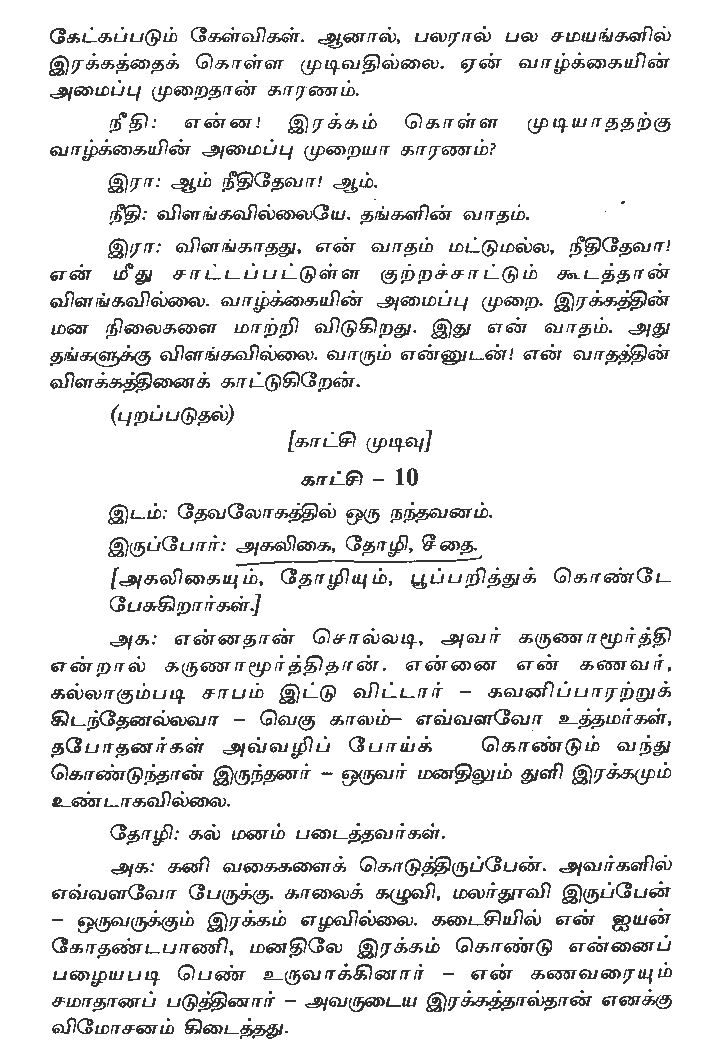 கேட்கப்படும் கேள்விகள். ஆனால், பலரால் பல சமயங்களில்
இரக்கத்தைக் கொள்ள முடிவதில்லை. ஏன் வாழ்க்கையின்
அமைப்பு முறைதான் காரணம்.
நீதி: என்ன! இரக்கம் கொள்ள முடியாததற்கு
வாழ்க்கையின் அமைப்பு முறையா காரணம்?
இரா: ஆம் நீதிதேவா! ஆம்.
நீதி: விளங்கவில்லையே. தங்களின் வாதம்.
இரா: விளங்காதது, என் வாதம் மட்டுமல்ல, நீதிதேவா!
என் மீது சாட்டப்பட்டுள்ள குற்றச்சாட்டும் கூடத்தான்
விளங்கவில்லை. வாழ்க்கையின் அமைப்பு முறை. இரக்கத்தின்
மன நிலைகளை மாற்றி விடுகிறது. இது என் வாதம். அது
தங்களுக்கு விளங்கவில்லை. வாரும் என்னுடன்! என் வாதத்தின்
விளக்கத்தினைக் காட்டுகிறேன்.
(புறப்படுதல்)
[காட்சி முடிவு]
காட்சி – 10
இடம்: தேவலோகத்தில் ஒரு நந்தவனம்.
இருப்போர்: அகலிகை, தோழி, சீதை.
[அகலிகையும், தோழியும், பூப்பறித்துக் கொண்டே
பேசுகிறார்கள்.]
அக: என்னதான் சொல்லடி, அவர் கருணாமூர்த்தி
என்றால் கருணாமூர்த்திதான். என்னை என் கணவர்,
கல்லாகும்படி சாபம் இட்டு விட்டார் – கவனிப்பாரற்றுக்
கிடந்தேனல்லவா – வெகு காலம்– எவ்வளவோ உத்தமர்கள்,
தபோதனர்கள் அவ்வழிப் போய்க் கொண்டும் வந்து
கொண்டுந்தான் இருந்தனர் – ஒருவர் மனதிலும் துளி இரக்கமும்
உண்டாகவில்லை.
தோழி: கல் மனம் படைத்தவர்கள்.
அக: கனி வகைகளைக் கொடுத்திருப்பேன். அவர்களில்
எவ்வளவோ பேருக்கு. காலைக் கழுவி, மலர்தூவி இருப்பேன்
– ஒருவருக்கும் இரக்கம் எழவில்லை. கடைசியில் என் ஐயன்
கோதண்டபாணி, மனதிலே இரக்கம் கொண்டு என்னைப்
பழையபடி பெண் உருவாக்கினார் – என் கணவரையும்
சமாதானப் படுத்தினார் – அவருடைய இரக்கத்தால்தான் எனக்கு
விமோசனம் கிடைத்தது.